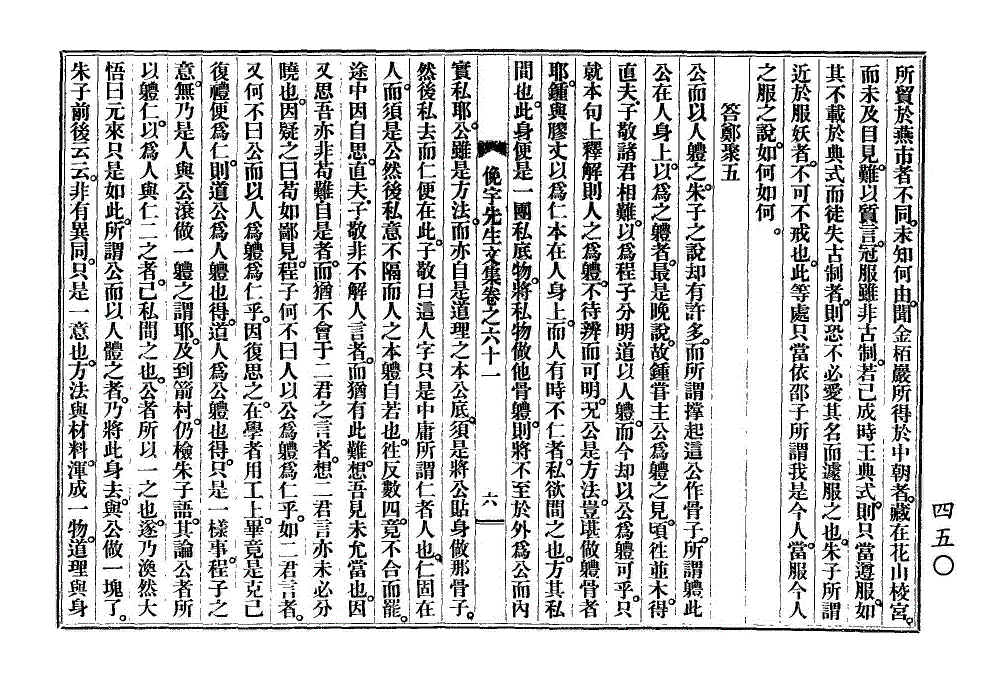 所貿於燕市者不同。未知何由。聞金栢巖所得於中朝者。藏在花山校宮。
而未及目見。難以質言。冠服雖非古制。若已成時王典式。則只當遵服。如
其不載於典式而徒失古制者。則恐不必愛其名而遽服之也。朱子所謂
近於服妖者。不可不戒也。此等處只當依邵子所謂我是今人。當服今人
之服之說。如何如何。
答鄭聚五
公而以人軆之。朱子之說却有許多。而所謂撑起這公作骨子。所謂軆此
公在人身上。以爲之軆者。最是晩說。故鍾甞主公爲軆之見。頃徃並木。得
直夫,子敬諸君相難。以爲程子分明道以人軆。而今却以公爲軆可乎。只
就本句上釋解則人之爲軆。不待辨而可明。况公是方法。豈堪做軆骨者
耶。鍾與膠丈以爲仁本在人身上。而人有時不仁者。私欲間之也。方其私
間也。此身便是一團私底物。將私物做他骨軆。則將不至於外爲公而內
俛宇先生文集卷之六十一
六
實私耶。公雖是方法。而亦自是道理之本公底。須是將公貼身做那骨子。
然後私去而仁便在此。子敬曰這人字只是中庸所謂仁者人也。仁固在
人。而須是公然後私意不隔而人之本軆自若也。徃反數四。竟不合而罷。
途中因自思。直夫,子敬非不解人言者。而猶有此難。想吾見未允當也。因
又思吾亦非苟難自是者。而猶不會于二君之言者。想二君言亦未必分
曉也。因疑之曰苟如鄙見。程子何不曰人以公爲軆爲仁乎。如二君言者。
又何不曰公而以人爲軆爲仁乎。因復思之。在學者用工上。畢竟是克己
復禮便爲仁。則道公爲人軆也得。道人爲公軆也得。只是一樣事。程子之
意。無乃是人與公滾做一軆之謂耶。及到箭村。仍檢朱子語。其論公者所
以軆仁。以爲人與仁二之者。己私間之也。公者所以一之也。遂乃渙然大
悟曰元來只是如此。所謂公而以人体之者。乃將此身去。與公做一塊了。
朱子前後云云。非有異同。只是一意也。方法與材料渾成一物。道理與身
四五〇